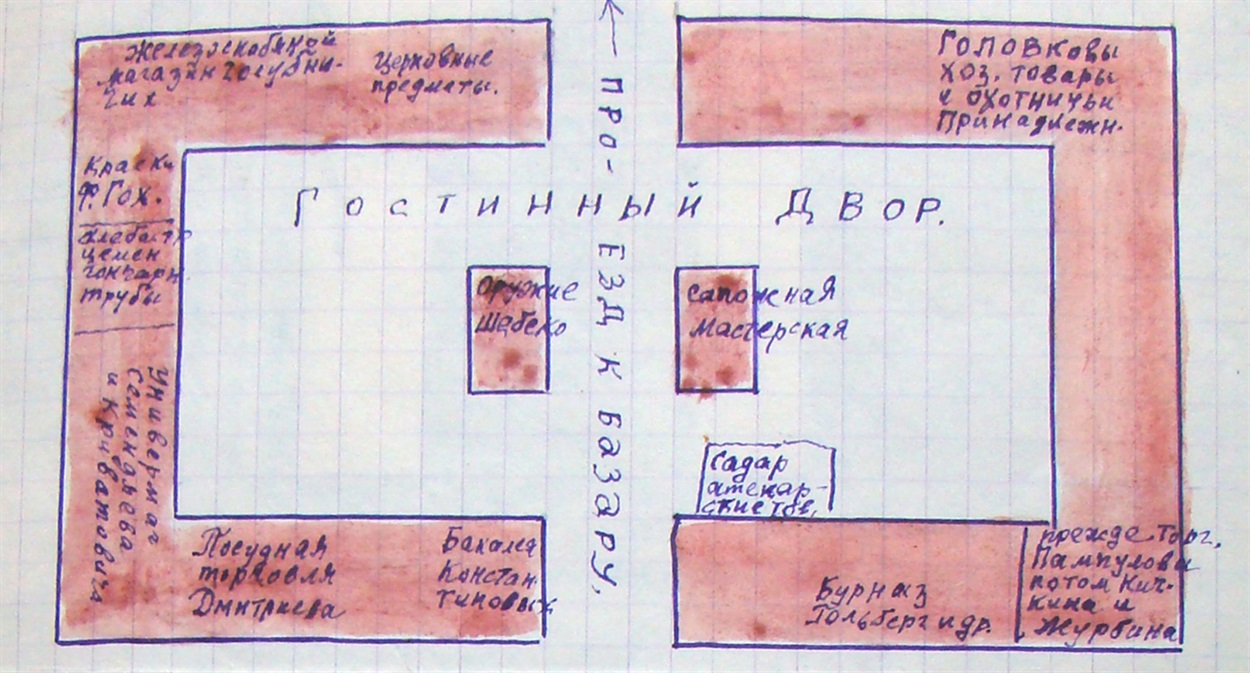 Железоскобяной
магазин Голубни-
чих
Церковные
предметы.
← ПРО-ЕЗД К БАЗАРУ.
ГОЛОВКОВЫ
хоз. товары
и охотничьи
принадлежн.
Краски
Ф. Гох.
Гостинный Двор.
алебастр
цемен
гончарн.
трубы
Оружие
Шабеко
Сапожная
мастерская
Универмаг
Семендяева
и Криватовича
Садар
аптекар-
Посудная
торговля
Дмитриева
Бакалея
Констан-
тиновых
Бурназ
Гольберг и др.
прежде торг.
Пампулова
потом Кич-
кина и
Журбина